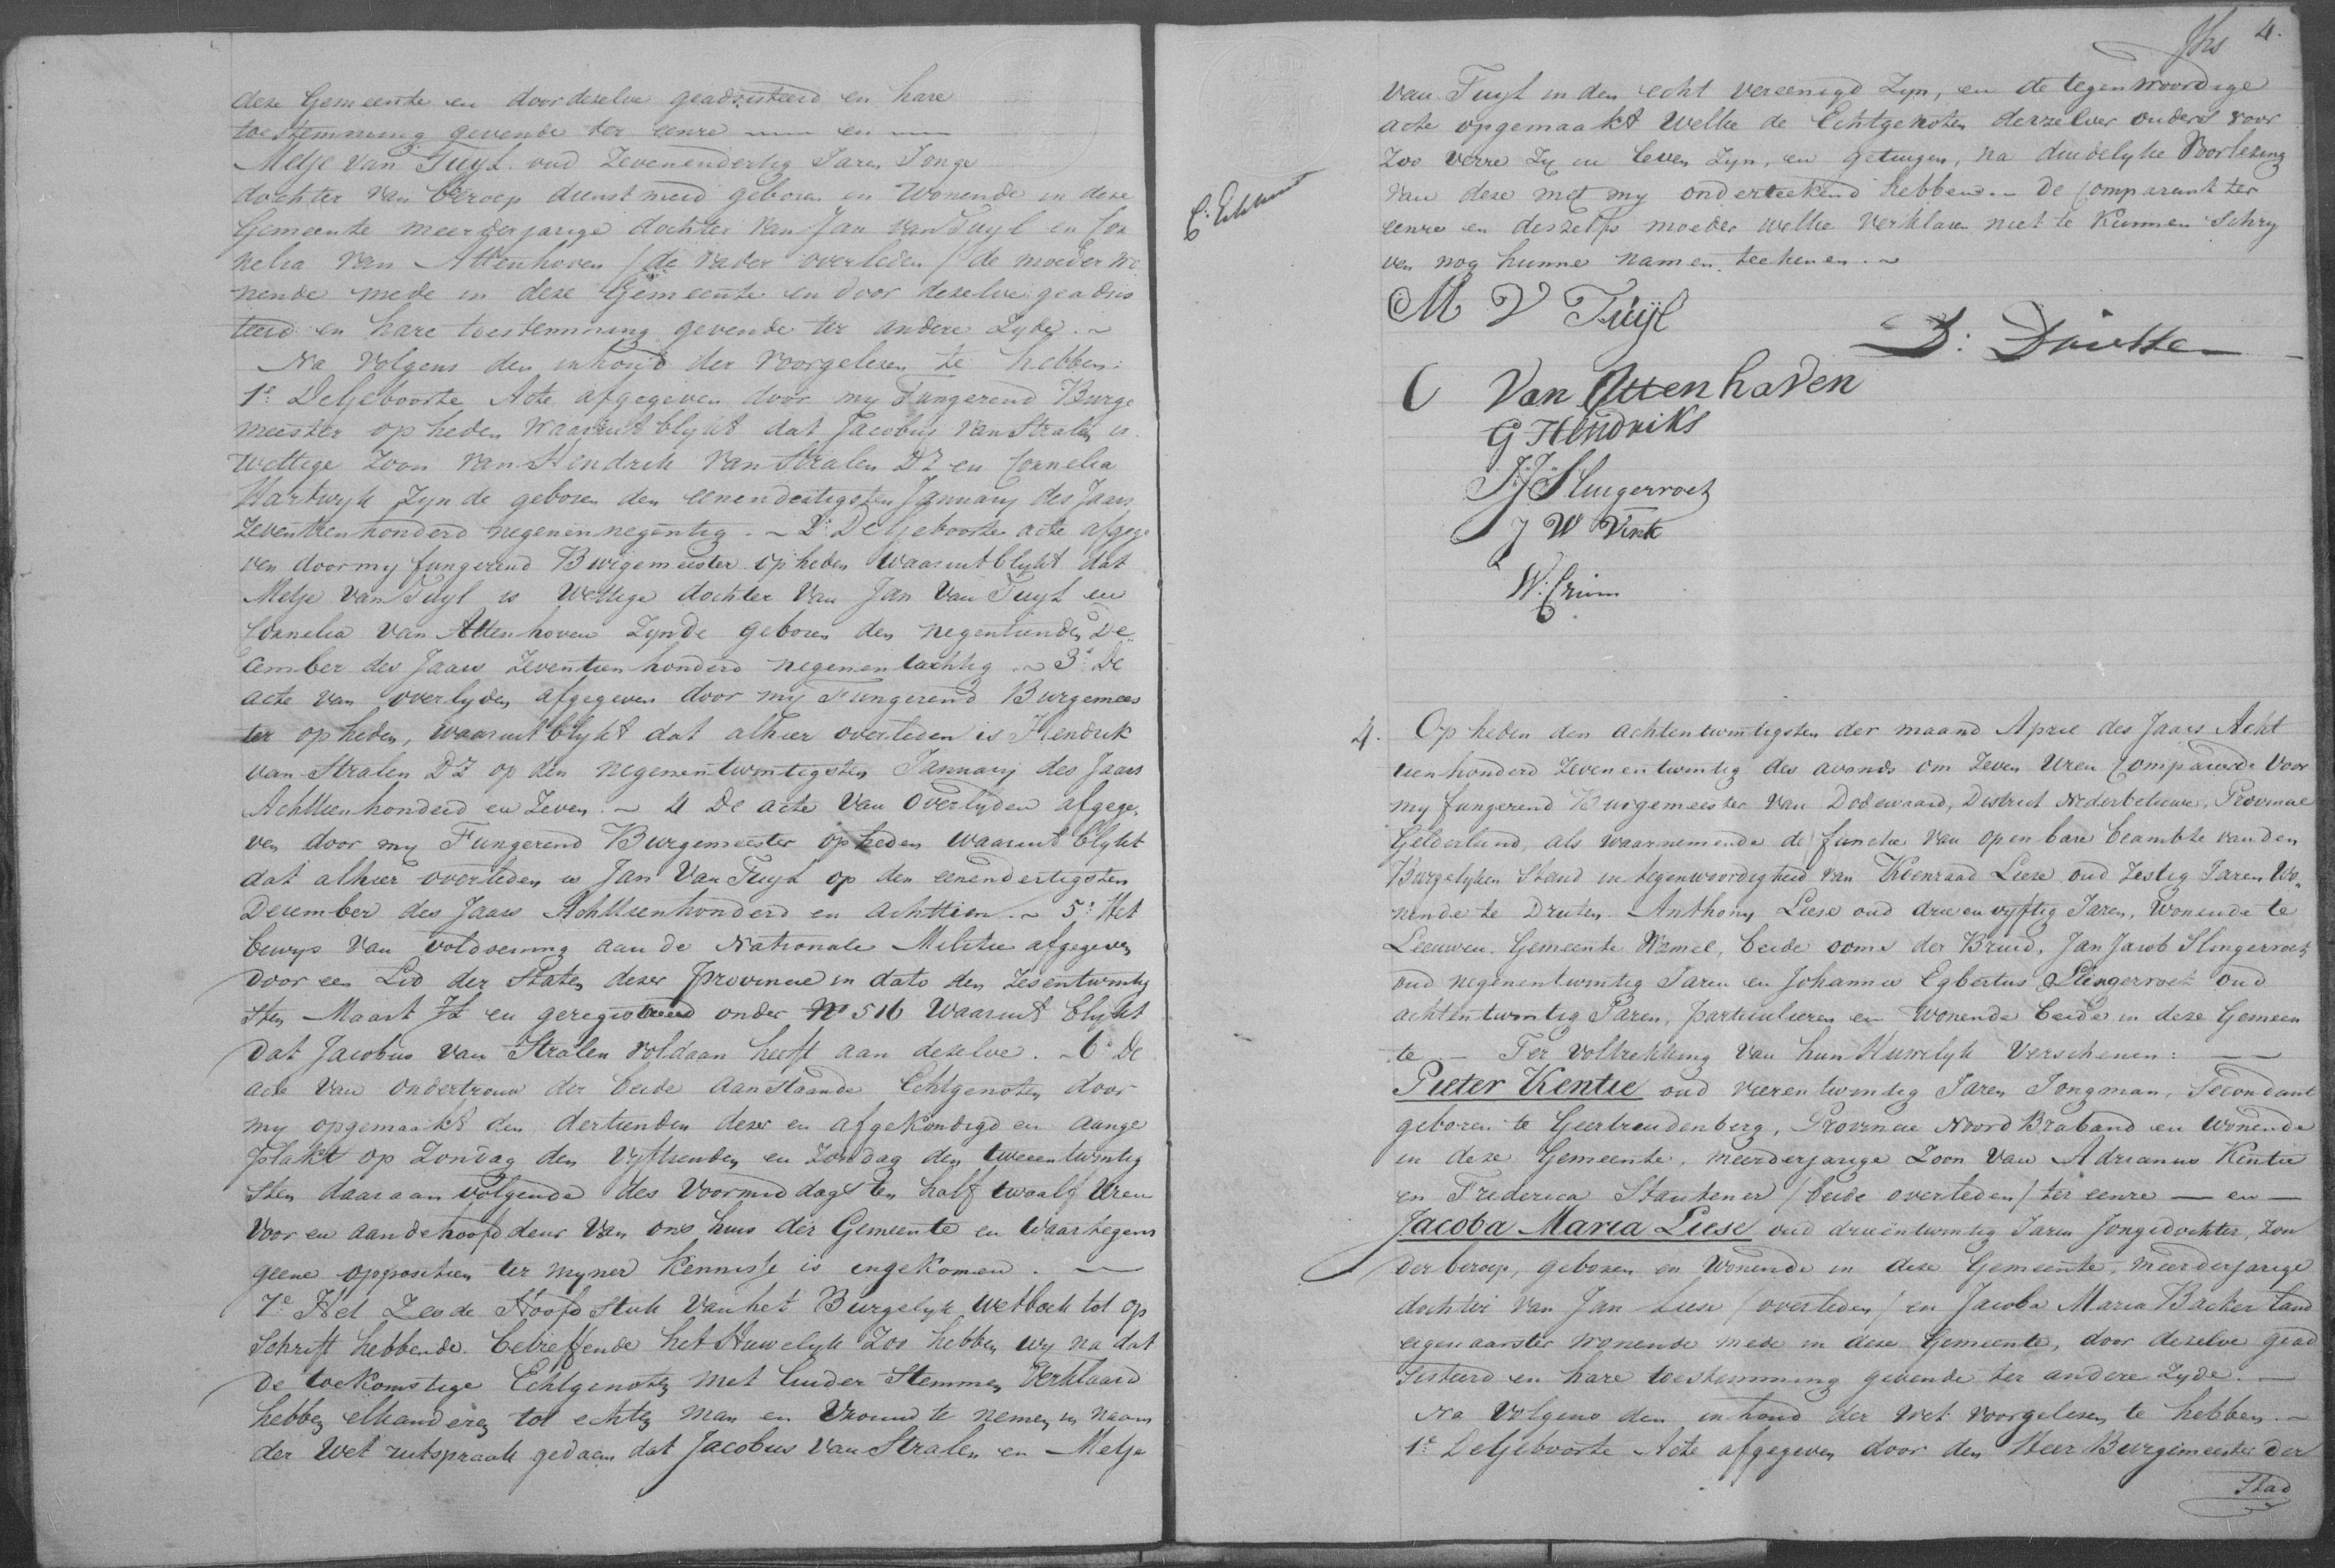 deze Gemeente en door dezelve geadsisteerd en hare
toestemming gevende ter eenre — en —
Metje van Tuyl oud Zevenendertig Jaren Jonge
dochter van beroep dienstmeid geboren en Wonende in deze
Gemeente meerderjarige dochter van Jan van Tuyl en Cor
nelia van Attenhoven / de vader overleden / de moeder wo
nende mede in deze Gemeente en door dezelve geadsis
teerd en hare toestemming gevende ter andere Zyde. ~
Na Volgens den inhoud der voorgelezen te hebben:
1e. De Geboorte Acte afgegeven door my Fungerend Burge
meester op heden Waaruit blykt dat Jacobus van Stralen is
Wettige Zoon van Hendrik van Stralen DZ en Cornelia
Hartwyk Zynde geboren den eenendertigsten January des Jaars
Zeventienhonderd negenennegentig. ~ 2e. De Geboorte acte afgege
ven door my fungerend Burgemeester op heden waaruit blykt dat
Metje van Tuyl is Wettige dochter van Jan van Tuyl en
Cornelia van Attenhoven Zynde geboren den negentienden De
cember des Jaars Zeventien honderd negenentachtig. ~ 3e. De
acte van overlyden afgegeven door my Fungerend Burgemees
ter op heden, waaruit blykt dat alhier overleden is Hendrik
van Stralen DZ op den negenentwintigsten January des Jaars
Achttienhonderd en Zeven. ~ 4 De acte van Overlyden afgege
ven door my Fungerend Burgemeester op heden waaruit blykt
dat alhier overleden is Jan van Tuyl op den eenendertigsten
December des Jaars Achttienhonderd en achttien. ~ 5e. Het
bewys van voldoening aan de Nationale Militie afgegeven
door een Lid der Staten dezer provincie in dato den Zesentwintig
sten Maart Jl en geregistreerd onder No 516 Waaruit blykt
dat Jacobus van Stralen voldaan heeft aan dezelve. ~ 6e. De
acte van ondertrouw der beide aanstaande Echtgenoten door
my opgemaakt den dertienden dezer en afgekondigd en aange
plakt op Zondag den Vyftienden en Zondag den tweeentwintig
sten daaraanvolgende des Voormiddags ten half twaalf Uren
voor en aan de hoofddeur van ons huis der Gemeente en waartegens
geene oppositien ter myner kennisse is ingekomen. —
7e. Het Zesde Hoofdstuk van het Burgelyk Wetboek tot op
schrift hebbende betreffende het Huwelyk Zoo hebben wy na dat
de toekomstige Echtgenoten met luider stemmen Verklaard
hebben elkanderen tot echten man en vrouw te nemen in naam
der Wet uitspraak gedaan dat Jacobus van Stralen en Metje
4.
van Tuyl in den echt vereenigd Zyn, en de tegenwoordige
acte opgemaakt welke de Echtgenoten derzelver ouders voor
Zoo verre Zy in leven Zyn, en getuigen, na duidelyke Voorlezing
van deze met my onderteekend hebben. ~ De Comparant ter
eenre en deszelfs moeder welke verklaren niet te kunnen Schry
ven nog hunne namen teekenen. ~
M V Tuÿl
C Van Attenhaven
G Hendriks
JJ Slingervoet
J W Vink
4. Op heden den achtentwintigsten der maand April des Jaars Acht
tienhonderd Zevenentwintig des avonds om Zeven Uren Compareerde Voor
my fungerend Burgemeester van Dodewaard, District Nederbetuwe, Provincie
Gelderland, als waarnemende de functie van openbare beambte van den
Burgelyken Stand in tegenwoordigheid van Koenraad Liese oud Zestig Jaren Wo
nende te Druten. Anthony Liese oud drieenvyftig Jaren, Wonende te
Leeuwen Gemeente Wamel, beide ooms der Bruid, Jan Jacob Slingervoet
oud negenentwintig Jaren en Johannes Egbertus Slingervoet oud
achtentwintig Jaren, particulieren en Wonende beide in deze Gemeen
te — Ter voltrekking van hun Huwelyk Verschenen: —
Pieter Kentie oud vierentwintig Jaren Jongman, Secondant
geboren te Geertruidenberg, Provincie Noord Braband en wonende
in deze Gemeente, meerderjarige Zoon van Adrianus Kentie
en Frederica Stautener / beide overleden / ter eenre — en —
Jacoba Maria Liese oud drieëntwintig Jaren Jongedochter, Zon
der beroep, geboren en Wonende in deze Gemeente, meerderjarige
dochter van Jan Liese / overleden / en Jacoba Maria Backer land
eigenaarster wonende mede in deze Gemeente, door dezelve gead
sisteerd en hare toestemming gevende ter andere Zyde. —
Na Volgens den inhoud der Wet voorgelezen te hebben. ~
1e. De Geboorte Acte afgegeven door den Heer Burgemeester der
Stad